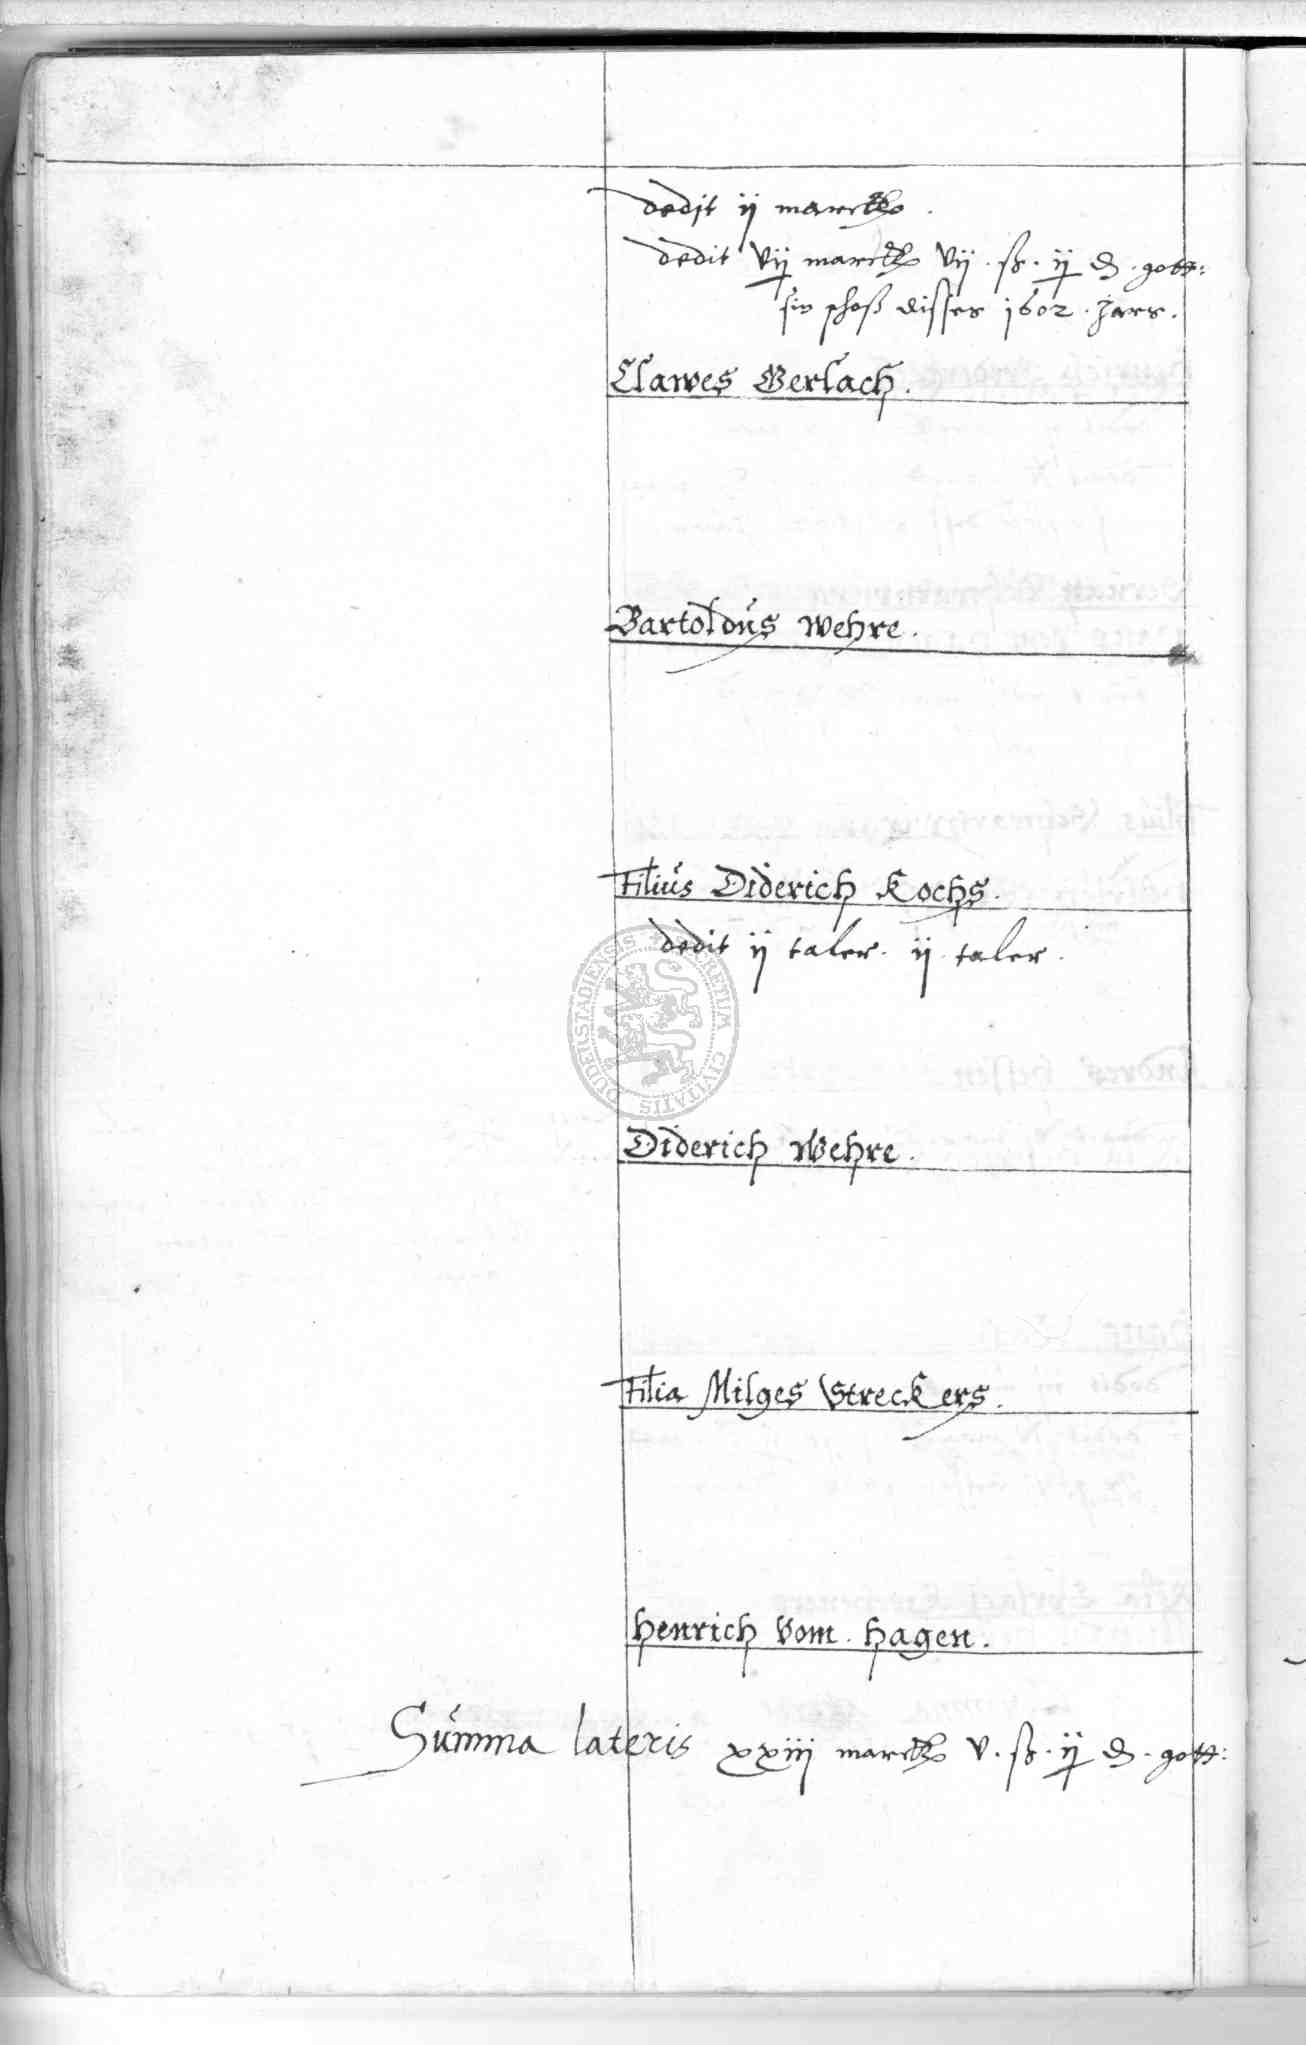 dedit ij marck
dedit vij marck vij. ß. ij d. gott:
sin schoß disses 1602. Jars.
Clawes Gerlach.
Bartoldus Wehre.
Filius Diderich Kochs.
dedit ij taler. ij. taler.
Diderich Wehre.
Filia Milges Streckers.
Henrich Vom. Hagen.
Summa lateris xxiij marck v. ß. ij d. gott:
SECRETUM CIVITATIS DUDERSTADIENSIS